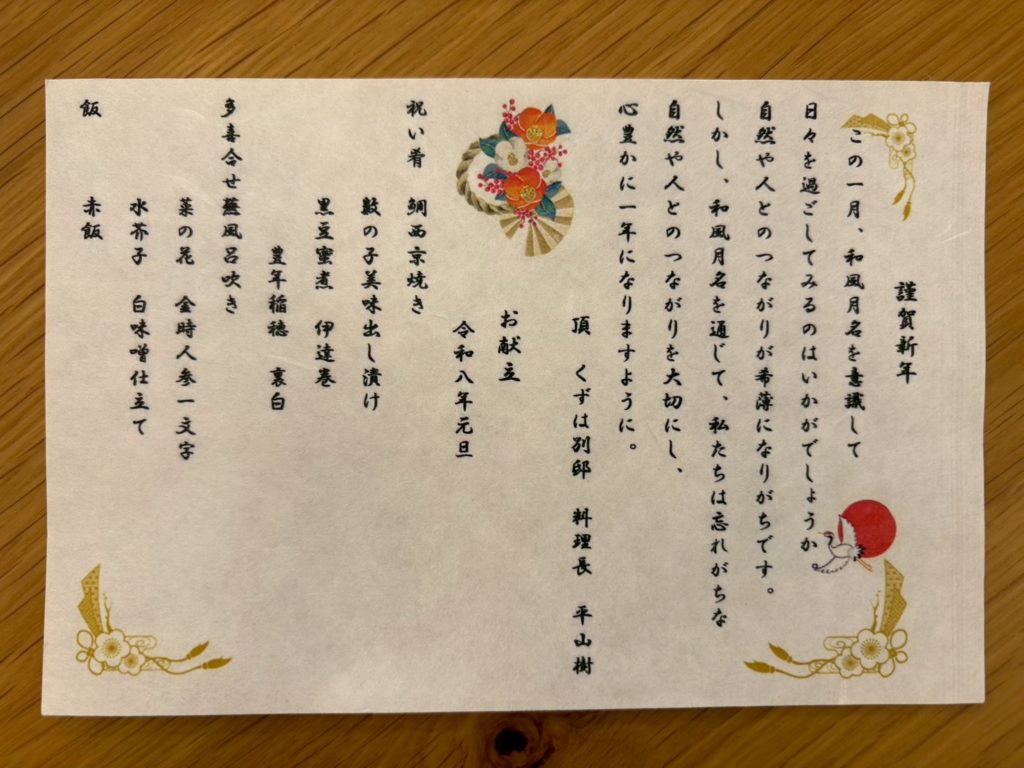 謹賀新年
この一月、和風月名を意識して
日々を過ごしてみるのはいかがでしょうか
自然や人とのつながりが希薄になりがちです。
しかし、和風月名を通じて、私たちは忘れがちな
自然や人とのつながりを大切にし、
心豊かに一年になりますように。
頂 くずは別邸 料理長 平山樹
お献立
令和八年元旦
祝い肴 鯛西京焼き
数の子美味出し漬け
黒豆蜜煮 伊達巻
豊年稲穂 裏白
多喜合せ蕪風呂吹き
菜の花 金時人参一文字
水芥子 白味噌仕立て
飯 赤飯